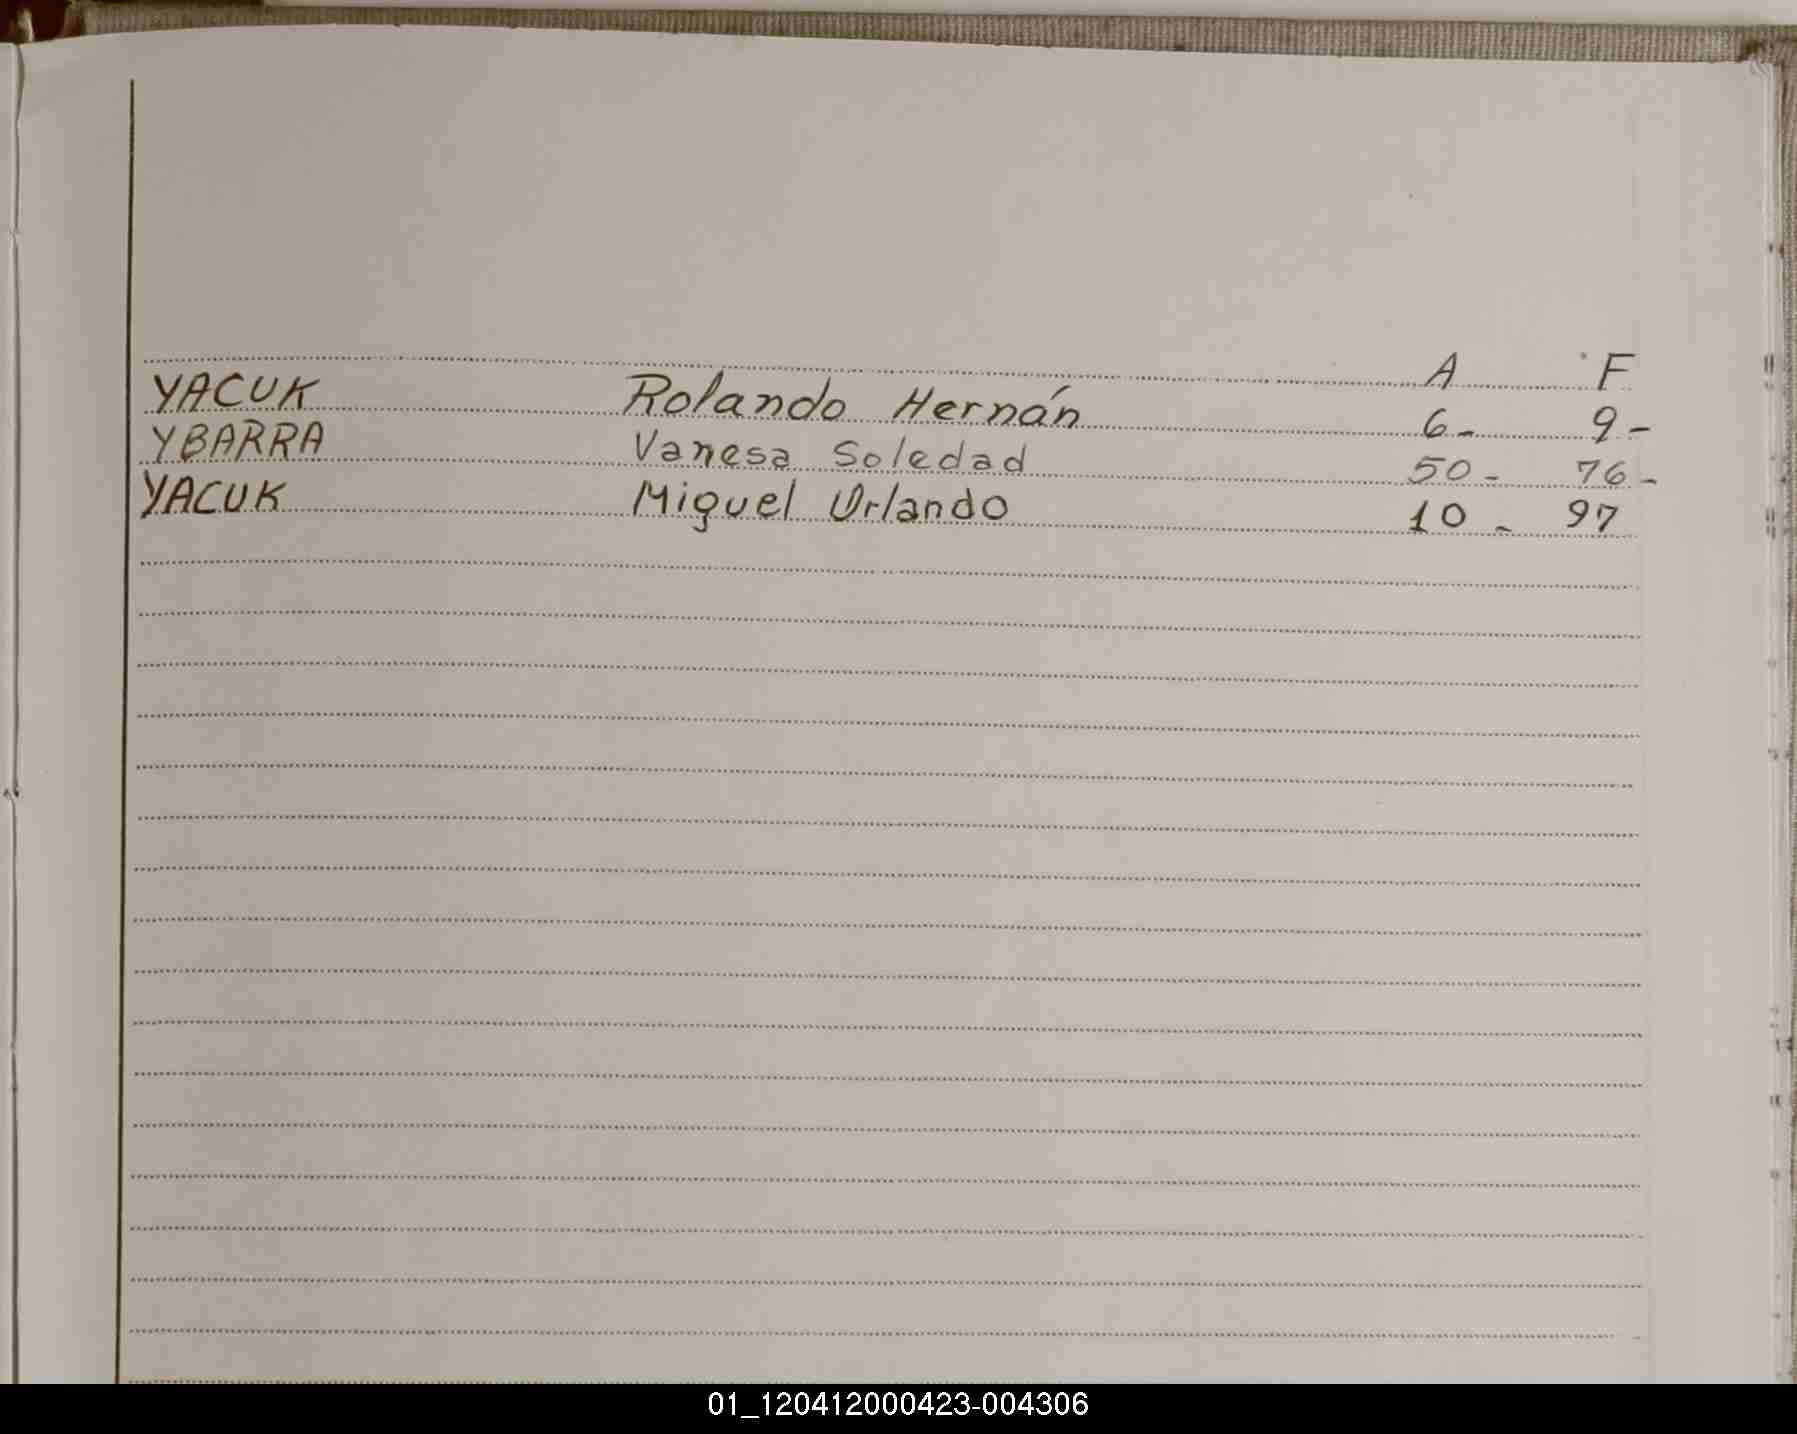 A F
YACUK Rolando Hernán 6- 9-
YBARRA Vanesa Soledad 50- 76-
YACUK Miguel Orlando 10- 97
01_120412000423-004306